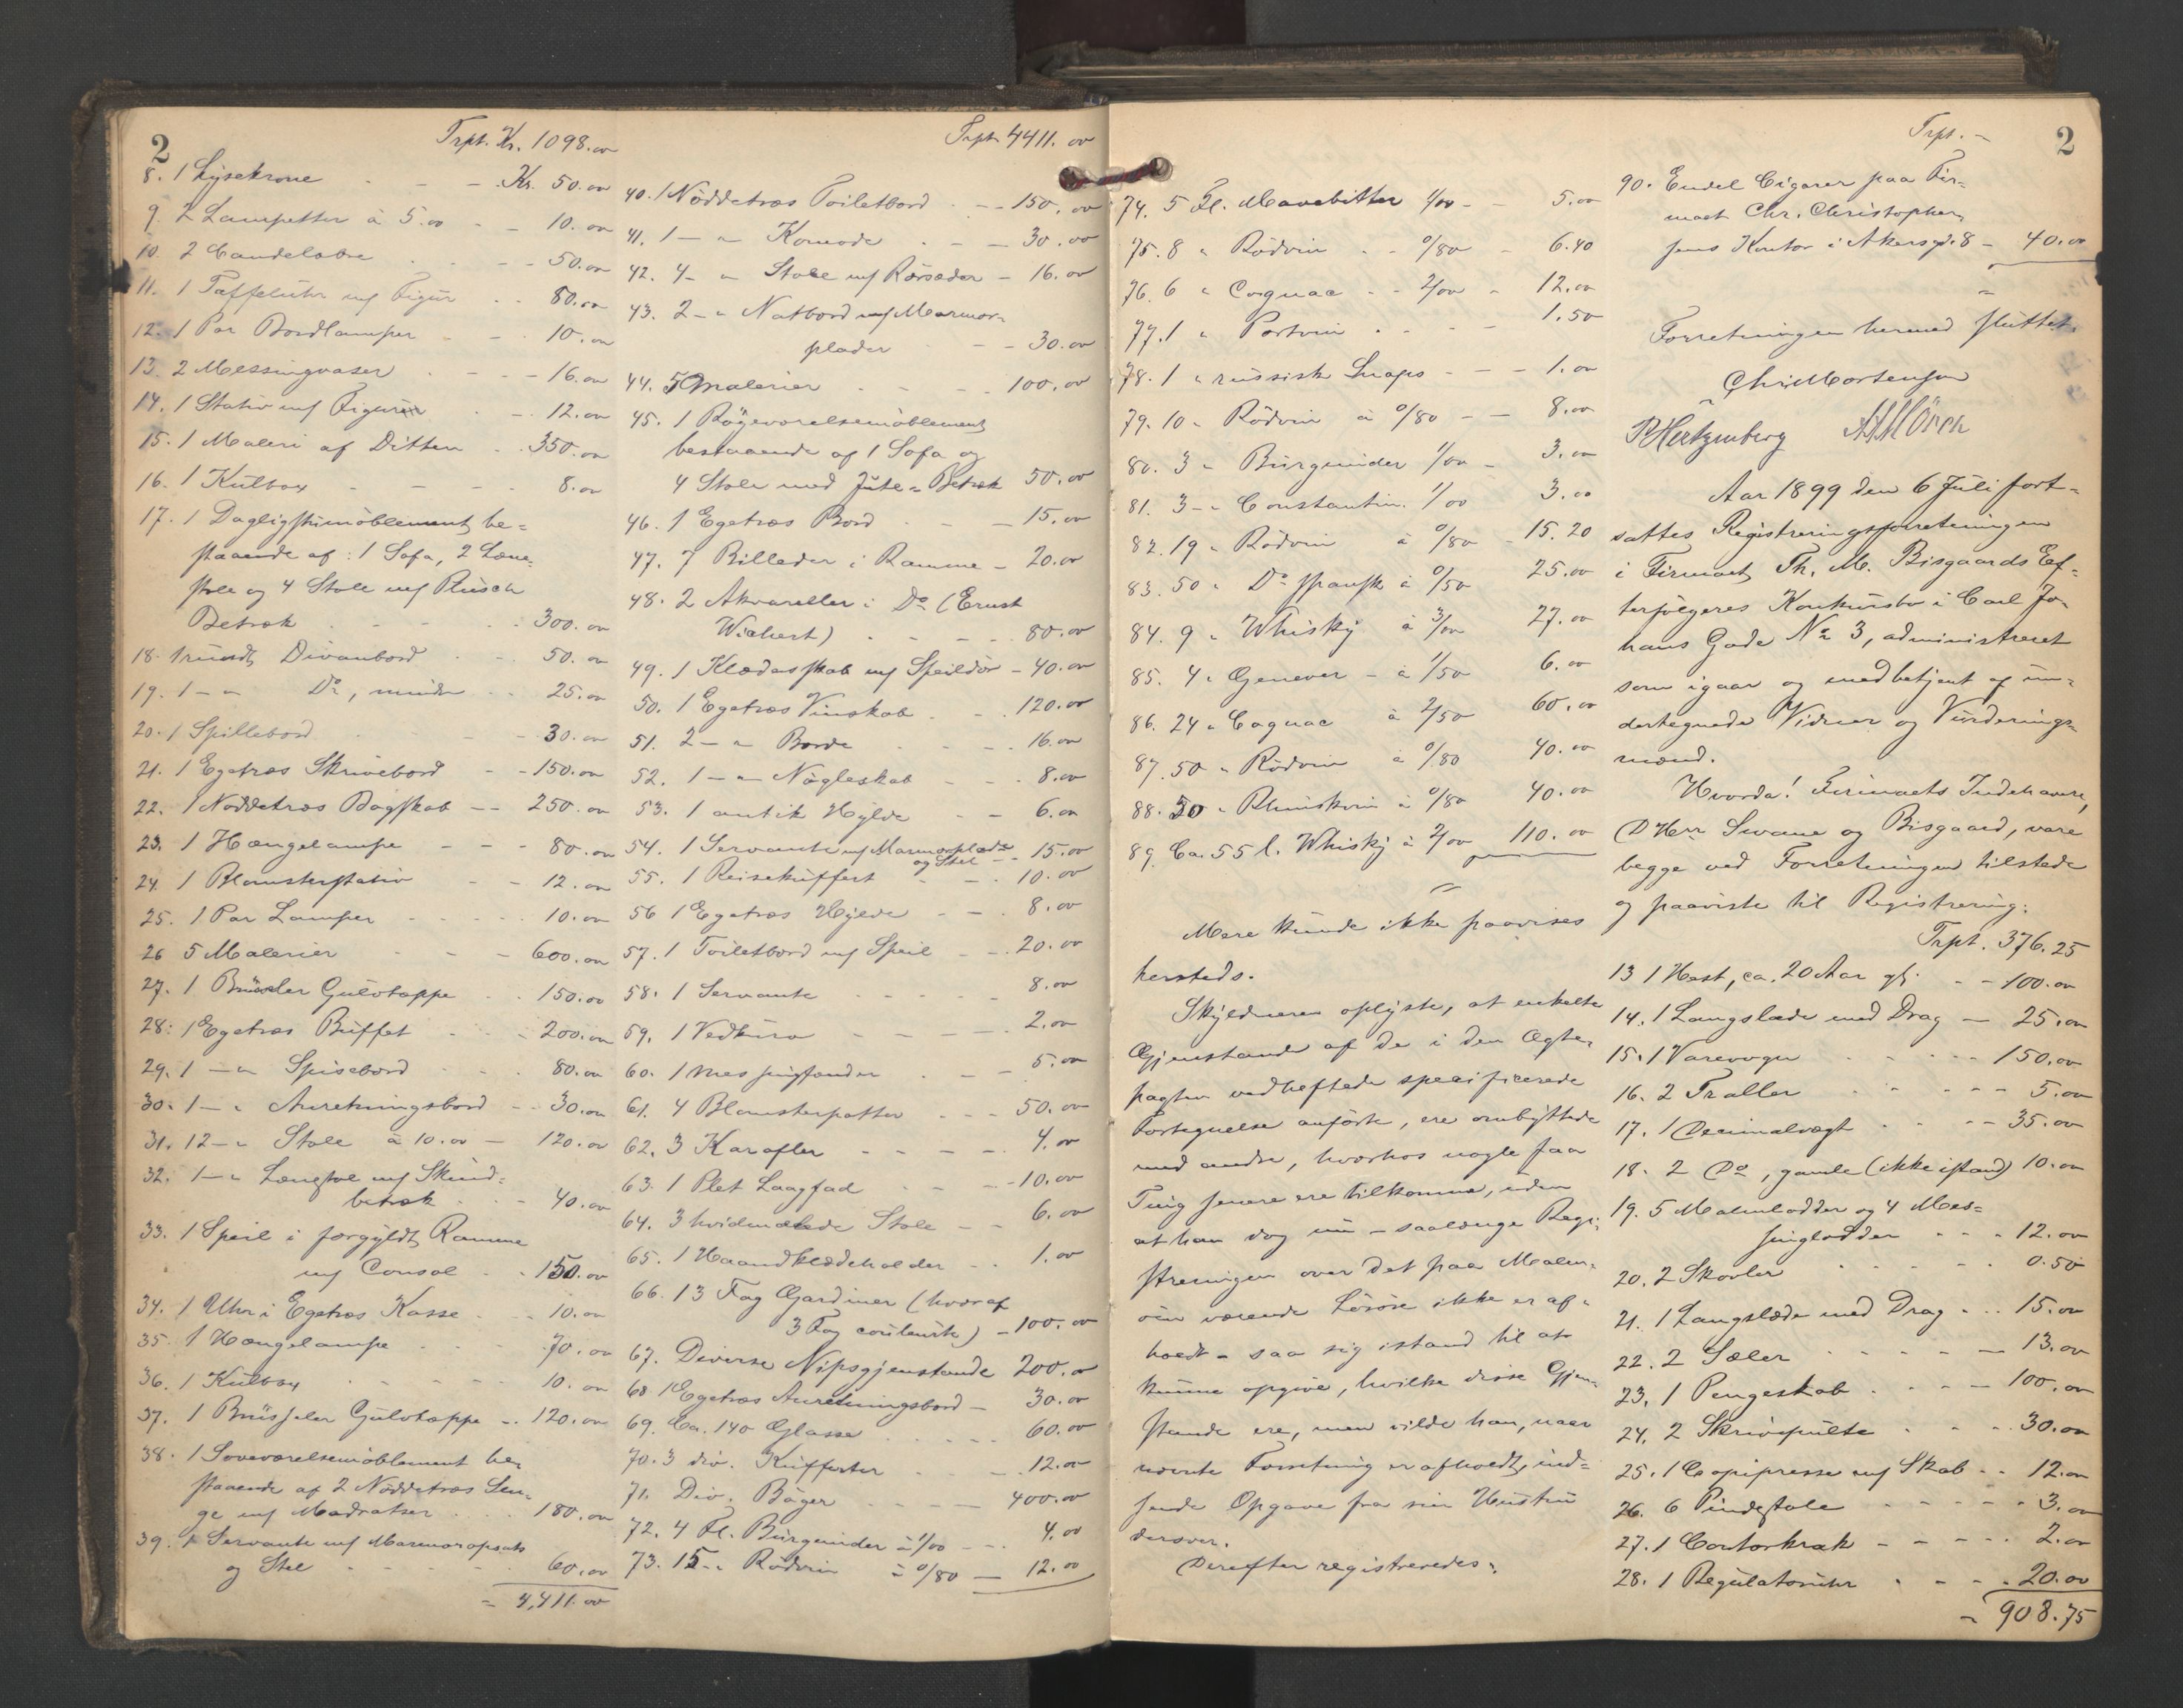 2
Trpt. Kr. 1098.00
8. 1 Lysekrone - - - Kr. 50.00
9. 2 Lampetter à 5.00 - - 10.00
10. 2 Candelabre - - 50.00
11. 1 Taffeluhr m/ Figur - - 80.00
12. 1 Par Bordlamper - - 10.00
13. 2 Messingvaser - - - 16.00
14. 1 Stativ m/ Figurer - - 12.00
15. 1 Maleri af Ditten - - 350.00
16. 1 Kulbox - - - 8.00
17. 1 Dagligst.møblement be=
staaende af: 1 Sofa, 2 Læne=
stole og 4 Stole m/ Plüsch
Betræk - - - 300.00
18. 1 rundt Divanbord - - 50.00
19. 1 - " - Do, mindre - - 25.00
20. 1 Spillebord - - - 30.00
21. 1 Egetræs Skrivebord - - 150.00
22. 1 Nøddetræs Bogskab - - 250.00
23. 1 Hængelampe - - - 80.00
24. 1 Blomsterstativ - - 12.00
25. 1 Par Lamper - - - 10.00
26 5 Malerier - - - 600.00
27. 1 Brüssler Gulvtæppe - - 150.00
28. 1 Egetræs Buffet - - 200.00
29. 1 - " - Spisebord - - 80.00
30. 1 - " Anretningsbord - - 30.00
31. 12 - " Stole à 10.00 - 120.00
32. 1 - " Lænestol m/ Skind=
betræk - - 40.00
33. 1 Speil i forgyldt Ramme
m/ Consol - - 150.00
34. 1 Uhr i Egetræs Kasse - - 10.00
35. 1 Hængelampe - - - 70.00
36. 1 Kulbox - - - 10.00
37. 1 Brüsseler Gulvtæppe - - 120.00
38. 1 Soveværelsemøblement be=
staaende af 2 Nøddetræs Sen=
ge m/ Madratser - - - 180.00
39. 1 Servante m/ Marmoropsats
og Stel - - - 60.00
= 4,411.00
Trpt. 4411.00
40. 1 Nøddetræs Toiletbord - - 150.00
41. 1 - " Komode - - - 30.00
42. 4 - " Stole m/ Rørsæder - 16.00
43. 2 - " Natbord m/ Marmor=
plader - - 30.00
44. 5 Malerier - - - 100.00
45. 1 Røgeværelsemøblement
bestaaende af 1 Sofa og
4 Stole med Jute = Betræk 50.00
46. 1 Egetræs Bord - - - 15.00
47. 7 Billeder i Ramme - 20.00
48. 2 Akvareller i Do (Ernst
Wichert) - - - 80.00
49. 1 Klædesskab m/ Speildør - 40.00
50. 1 Egetræs Vinskab - - 120.00
51. 2 - " Borde - - - 16.00
52. 1 - " - Nøgleskab - - - 8.00
53. 1 antik Hylde - - 6.00
54. 1 Servante m/ Marmorplade
og Stel - - 15.00
55. 1 Reisekuffert - - - 10.00
56 1 Egetræs Hylde - - - 8.00
57. 1 Toiletbord m/ Speil - - 20.00
58. 1 Servante - - - 8.00
59. 1 Vedkurv - - - 2.00
60. 1 Messingfander - - - 5.00
61. 4 Blomsterpotter - - - 50.00
62. 3 Karafler - - - 4.00
63. 1 Plet Laagfad - - - 10.00
64. 3 hvidmalede Stole - - 6.00
65. 1 Haandklædeholder - - 1.00
66. 13 Fag Gardiner (hvoraf
3 Fag coulørte) - 100.00
67. Diverse Nipsgjenstande 200.00
68 1 Egetræs Anretningsbord - 30.00
69. Ca. 140 Glasse - - - 60.00
70. 3 div. Kufferter - - - 12.00
71. Div. Bøger - - - 400.00
72. 4 Fl. Burgunder à 1/00 - - 4.00
73. 15 - " Rødvin à 0/80 - 12.00
74. 5 Fl. Mavebitter 1/00 - - 5.00
75. 8 " Rødvin - - 0/80 - 6.40
76. 6 " Cognac - - 2/00 - 12.00
77. 1 " Portvin - - - 1.50
78. 1 " russisk Snaps - - - 1.00
79. 10 - Rødvin à 0/80 - - 8.00
80. 3 " Burgunder 1/00 - 3.00
81. 3 - " Constantin. 1/00 3.00
82. 19 " Rødvin à 0/80 - 15.20
83. 50 " Do spansk à 0/50 25.00
84. 9 " Whisky à 3/00 27.00
85. 4 " Genever - à 1/50 6.00
86. 24 " Cognac à 2/50 60.00
87. 50 " Rødvin à 0/80 40.00
88. 50 " Rhinskvin à 0/80 40.00
89. Ca. 55 l. Whisky à 2/00 110.00
Mere kunde ikke paavises
hersteds.
Skyldneren oplyste, at enkelte
Gjenstande af de i den Ægte=
pagten vedheftede specificerede
Fortegnelse anførte, ere ombyttede
med andre, hvorhos nogle faa
Ting senere ere tilkomne, uden
at han dog nu - saalænge Regi=
streringen over det paa Malm=
øen værende Løsøre ikke er af=
holdt - saa sig istand til at
kunne opgive, hvilke disse Gjen=
stande ere, men vilde han, naar
nævnte Forretning er afholdt, ind=
sende Opgave fra sin Hustru
derover.
Derefter registreredes:
Trpt. -
2
90. Endel Cigarer paa Fir=
maet Chr. Christopher=
sens Kontor i Akersgd. 8 - 40.00
Forretningen hermed sluttet.
Chr. Mortensen
P Hertzenberg A H Mörch
Aar 1899 den 6 Juli fort=
sattes Registreringsforretningen
i Firmaet Th. M. Bisgaards Ef=
terfølgeres Konkursbo i Carl Jo=
hans Gade No 3, administreret
som igaar og medbetjent af un=
dertegnede Vidner og Vurderings=
mænd.
Hvorda! Firmaets Indehavere,
D'Herr Svane og Bisgaard, vare
begge ved Forretningen tilstede
og paaviste til Registrering:
Trpt. 376.25
13 1 Hest, ca. 20 Aar gl. - - 100.00
14. 1 Langslæde med Drag - 25.00
15. 1 Varevogn - - - 150.00
16. 2 Traller - - - 5.00
17. 1 Decimalvægt - - - 35.00
18. 2 Do, gamle (ikke istand) 10.00
19. 5 Malmlodder og 4 Mes=
singlodder - - - 12.00
20. 2 Skovler - - - 0.50
21. 1 Langslæde med Drag - - 15.00
22. 2 Sæler - - - 13.00
23. 1 Pengeskab - - - 100.00
24. 2 Skrivepulte - - - 30.00
25. 1 Copipresse m/ Skab - - 12.00
26. 6 Pindestole - - - 3.00
27. 1 Contorkrak - - - 2.00
28. 1 Regulatoruhr - - - 20.00
= 908.75